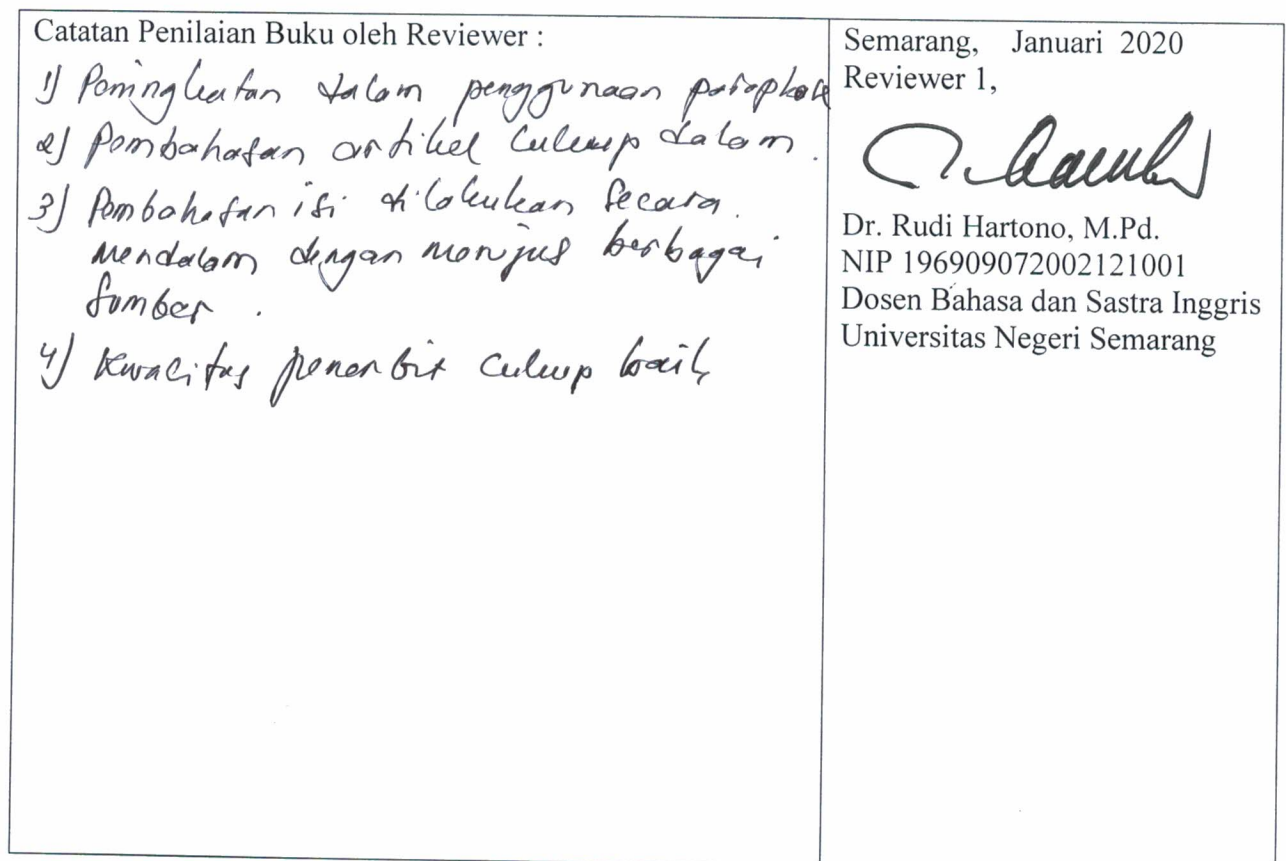 Catatan Penilaian Buku oleh Reviewer :
1) Peningkatan dalam penggunaan paraphrase
2) Pembahasan artikel cukup dalam.
3) Pembahasan isi dilakukan secara
mendalam dengan merujuk berbagai
sumber.
4) Kwalitas penerbit cukup baik
Semarang, Januari 2020
Reviewer 1,
Dr. Rudi Hartono, M.Pd.
NIP 196909072002121001
Dosen Bahasa dan Sastra Inggris
Universitas Negeri Semarang